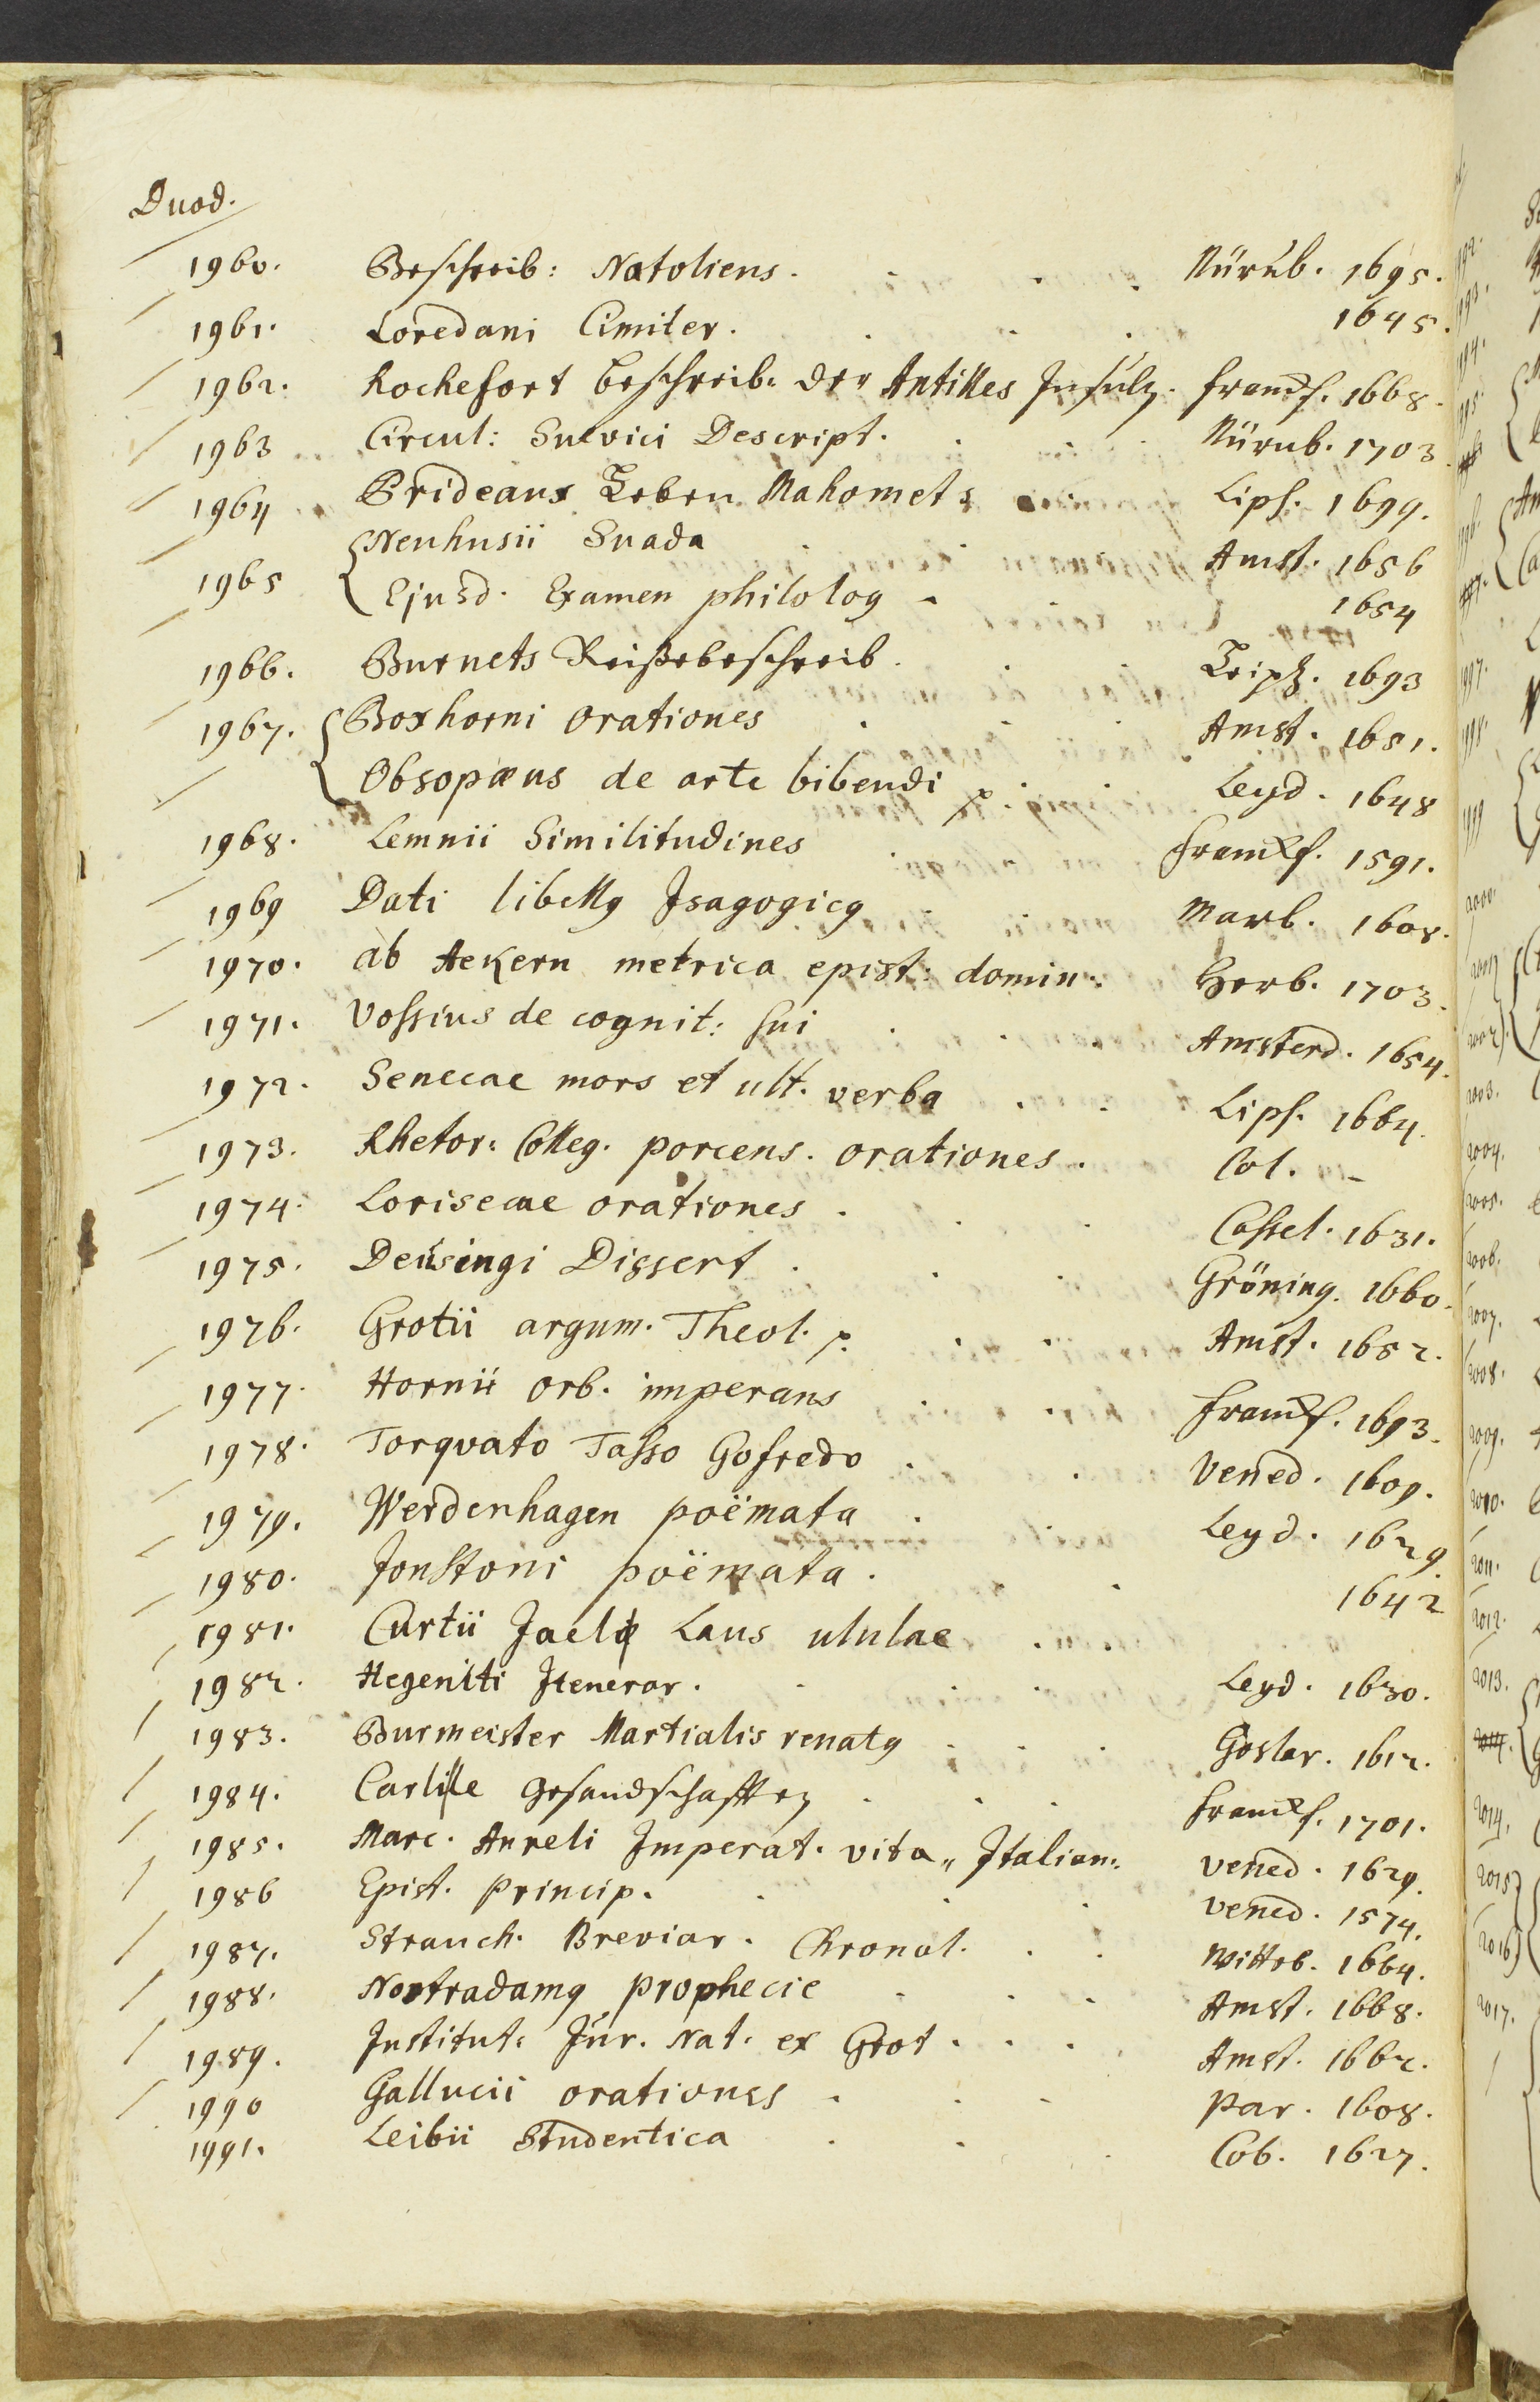 Duod.
1960. Beschreib: Natoliens. Nürnb. 1695.
1961. Loredani Cimiter. 1645.
1962. Rochefort beschreib: der Antilles Insuln. Franckf. 1668.
1963 Circul: Suevici Descript. Nürnb. 1703.
1964 Prideaux Leben Mahomets Lips. 1699.
1965 Neuhusii Suada Amst. 1656
Ejusd. Examen philolog 1654
1966. Burnets Reißebeschreib. Leipz. 1693
1967. Boxhorni Orationes Amst. 1651.
Obsopæus de arte bibendi p. Leyd. 1648
1968. Lemnii Similitudines Franckf. 1591.
1969 Dati libellus Isagogicus Marb. 1608.
1970. ab Aekern metrica epist: domin: Herb. 1703.
1971. Vossius de cognit: sui Amsterd. 1654.
1972. Senecae mors et ult. verba Lips. 1664.
1973. Rhetor: Colleg. porcens. orationes. Col. -
1974. Lorisecae orationes. Cassel. 1631.
1975. Deüsingi Dissert. Gröning. 1660.
1976. Grotii argum. Theol. p. Amst. 1652.
1977. Hornii orb. imperans Franckf. 1693.
1978. Torqvato Tasso Gofredo. Vened. 1609.
1979. Werdenhagen poëmata. Leyd. 1629
1980. Jonstoni poëmata. 1642
1981. Curtii Jaelis Laus ululae
1982. Hegeniti Itenerar. Leyd. 1630.
1983. Burmeister Martialis renatus Goslar. 1612.
1984. Carlille Gesandschafften Franckf. 1701.
1985. Marc. Aureli Imperat. vita „ Italian: Vened. 1629.
1986 Epist. Princip. Vened. 1574.
1987. Strauch. Breviar. Chronol. Witteb. 1664.
1988. Nostradamus prophecie Amst. 1668.
1989. Institut: Jur. Nat. ex Grot. Amst. 1662.
1990 Gallucii orationes. Par. 1608.
1991. Leibii Studentica Cob. 1627.